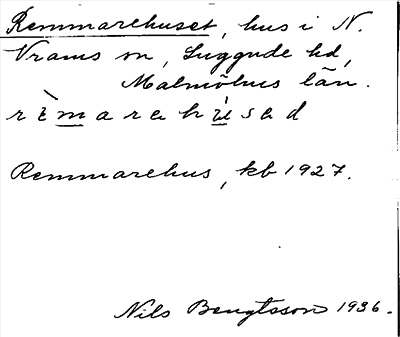 Remmarehuset, hus i N.
Vrams sn, Luggude hd,
Malmöhus län.
rèmarehúsad
Remmarehus, kb 1927.
Nils Bengtsson 1936.